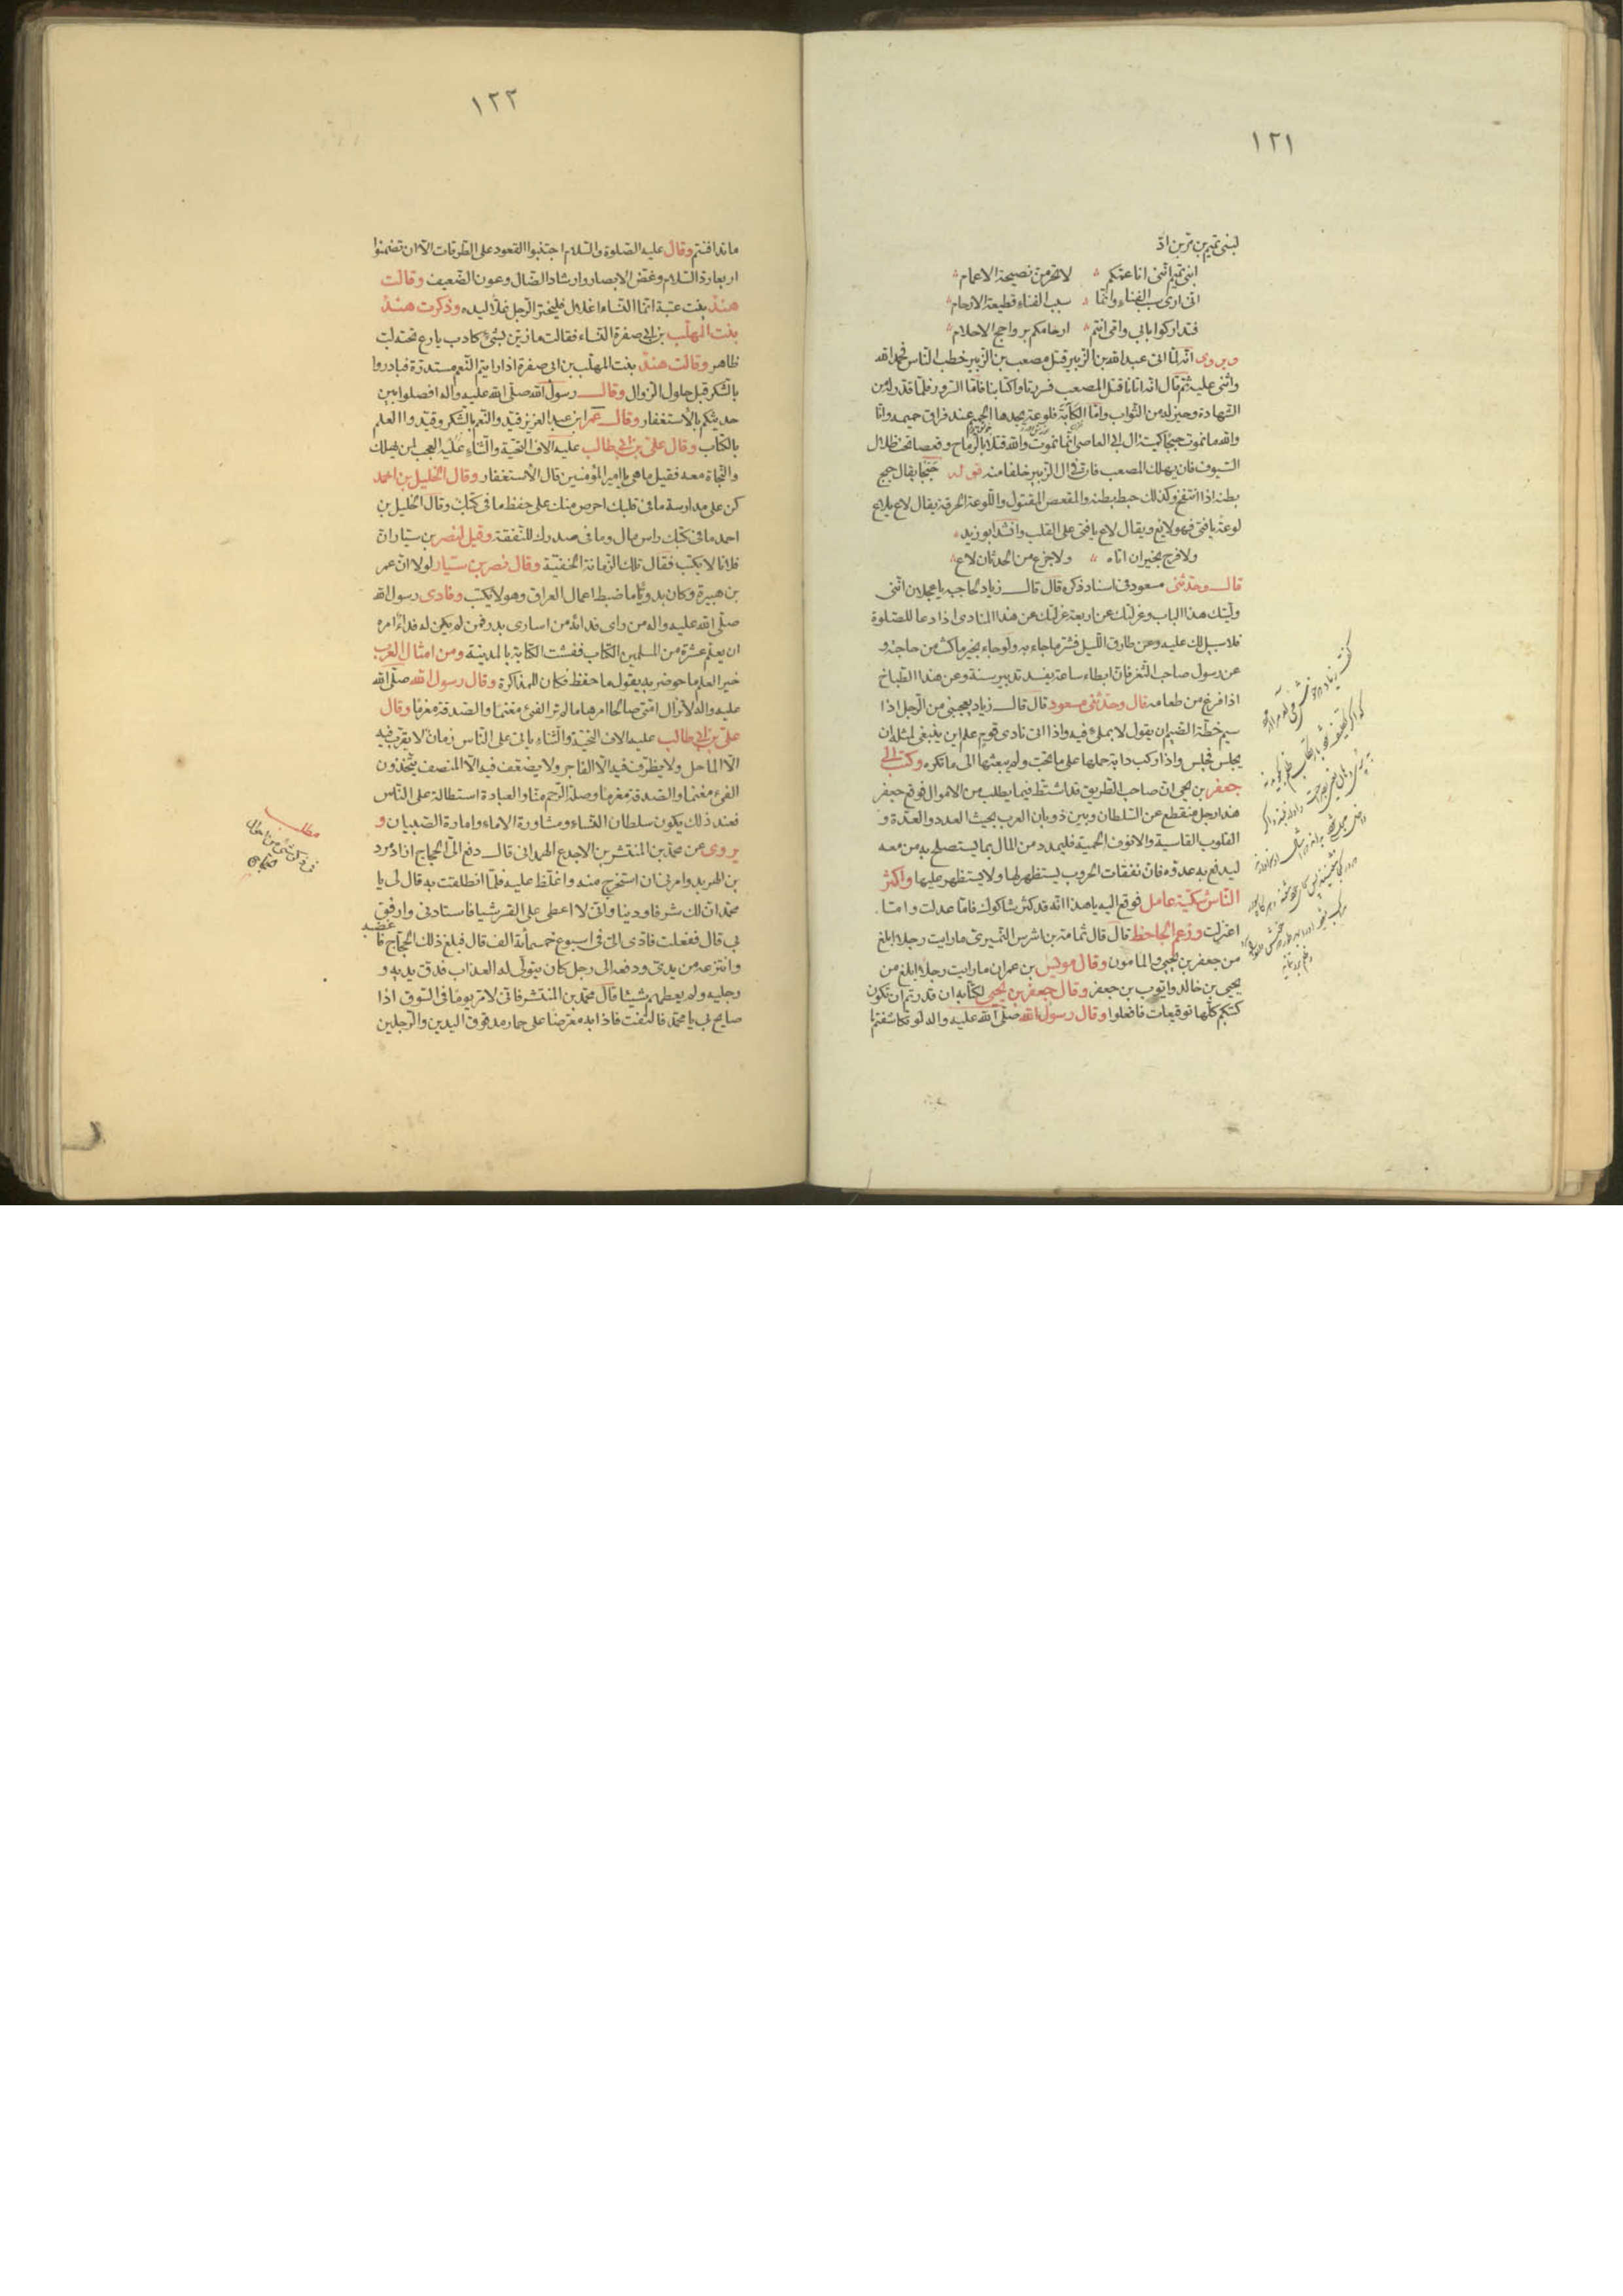 ١٢١
لبنى تميم بن مر بن اد
ابنى تميم اننى انا عمكم لا تحرمن نصيحة الاعمام
انى ارى سبب الفناء وانما سبب الفناء قطيعة الارحام
فتداركوا بابى وامى انتم ارحامكم برواجح الاحلام
ويروى انه لما اتى عبد الله بن الزبير قتل مصعب بن الزبير خطب الناس فحمد الله
واثنى عليه ثم قال انه اتانا قتل المصعب فسررنا واكتأبنا فاما السرور فلما قدر له من
الشهادة وحيز له من الثواب واما الكآبة فلوعة يجدها الحميم عند فراق حميمه وانا
والله ما نموت حبجا كميتة ال ابى العاصى انما نموت والله قتلا بالرماح وقعصا تحت ظلال
السيوف فان يهلك المصعب فان فى ال الزبير خلفا منه قوله حبجا يقال حبج
بطنه اذا انتفخ وكذلك حبط بطنه والمقعص المقتول واللوعة الحرقة يقال لاع يلاع
لوعة يا فتى فهو لائع ويقال لاع يا فتى على القلب وانشد ابو زيد
ولا فرح بخير ان اتاه ولا جزع من الحدثان لاع
قال وحدثنى مسعود فى اسناد ذكره قال قال زياد لحاجبه يا عجلان اننى
وليتك هذا الباب وعزلتك عن اربعة عزلتك عن هذا المنادى اذا دعا للصلوة
فلا سبيل لك عليه وعن طارق الليل فشر ما جاء به ولو جاء بخير ما كنت من حاجته و
عن رسول صاحب الثغر فان ابطاء ساعة يفسد تدبير سنة وعن هذا الطباخ
اذا فرغ من طعامه قال وحدثنى مسعود قال قال زياد يعجبنى من الرجل اذا
سيم خطة الضيم ان يقول لا بملء فيه واذا اتى نادى قوم علم اين ينبغى لمثله ان
يجلس فجلس واذا ركب دابة حملها على ما تحب ولم يبعثها الى ما تكره وكتب الى
جعفر بن يحيى ان صاحب الطريق قد اشتط فيما يطلب من الاموال فوقع جعفر
هذا رجل منقطع عن السلطان وبين ذوبان العرب بحيث العدد والعدة و
القلوب القاسية والانوف الحمية فليمدد من المال بما يستصلح به من معه
ليدفع به عدوه فان نفقات الحروب يستظهر لها ولا يستظهر عليها واكثر
الناس شكية عامل فوقع اليه يا هذا انه قد كثر شاكوك فاما عدلت واما
اعتزلت وزعم الجاحظ قال قال ثمامة بن اشرس النميرى ما رايت رجلا ابلغ
من جعفر بن يحيى والمامون وقال مويس بن عمران ما رايت رجلا ابلغ من
يحيى بن خالد وايوب بن جعفر وقال جعفر بن يحيى لكتابه ان قدرتم ان تكون
كتبكم كلها توقيعات فافعلوا وقال رسول الله صلى الله عليه واله لو تكاشفتم
١٢٢
ما تدافنتم وقال عليه الصلوة والسلام اجتنبوا القعود على الطرقات الا ان تضمنوا
اربعا رد السلام وغض الابصار وارشاد الضال وعون الضعيف وقالت
هند بنت عتبة انما النساء اغلال فليختر الرجل غلا ليده وذكرت هند
بنت المهلب بن ابى صفرة النساء فقالت ما زين بشىء كادب بارع تحته لب
ظاهر وقالت هند بنت المهلب بن ابى صفرة اذا رايتم النعم مستدرة فبادروا
بالشكر قبل حلول الزوال وقال رسول الله صلى الله عليه واله افصلوا بين
حديثكم بالاستغفار وقال عمر ابن عبد العزيز قيدوا النعم بالشكر وقيدوا العلم
بالكتاب وقال على بن ابى طالب عليه الاف التحية والثناء عليه العجب لمن يهلك
والنجاة معه فقيل ما هى يا امير المؤمنين قال الاستغفار وقال الخليل بن احمد
كن على مدارسة ما فى قلبك احرص منك على حفظ ما فى كتابك وقال الخليل بن
احمد ما فى كتبك راس مال وما فى صدرك للنفقة وقيل لنصر بن سيار ان
فلانا لا يكتب فقال تلك الزمانة الخفية وقال نصر بن سيار لولا ان عمر
بن هبيرة وكان بدويا ما ضبط اعمال العراق وهو لا يكتب وفادى رسول الله
صلى الله عليه واله من راى فداءه من اسارى بدر فمن لم يكن له فداء امره
ان يعلم عشرة من المسلمين الكتاب ففشت الكتابة بالمدينة ومن امثال العرب
خير العلم ما حوضر به يقول ما حفظ فكان للمذاكرة وقال رسول الله صلى الله
عليه واله لا تزال امتى صالحا امرها ما لم تر الفىء مغنما والصدقة مغرما وقال
على بن ابى طالب عليه الاف التحية والثناء ياتى على الناس زمان لا يقرب فيه
الا الماحل ولا يظرف فيه الا الفاجر ولا يضعف فيه الا المنصف يتخذون
الفىء مغنما والصدقة مغرما وصلة الرحم منا والعبادة استطالة على الناس
فعند ذلك يكون سلطان النساء ومشاورة الاماء وامارة الصبيان و
يروى عن محمد بن المنتشر بن الاجدع الهمدانى قال دفع الى الحجاج ازادمرد
بن الهربد وامرنى ان استخرج منه واغلظ عليه فلما انطلقت به قال لى يا
محمد ان لك شرفا ودينا وانى لا اعطى على القسر شيا فاستادنى وارفق
بى قال ففعلت فادى الى فى اسبوع خمسمأئة الف قال فبلغ ذلك الحجاج فا غضبه
وانتزعه من يدى ودفعه الى رجل كان يتولى له العذاب فدق يديه و
رجليه ولم يعطهم شيئا قال محمد بن المنتشر فانى لامر يوما فى السوق اذا
صايح بى يا محمد فالتفت فاذا به معرضا على حمار مدقوق اليدين والرجلين
مطلب